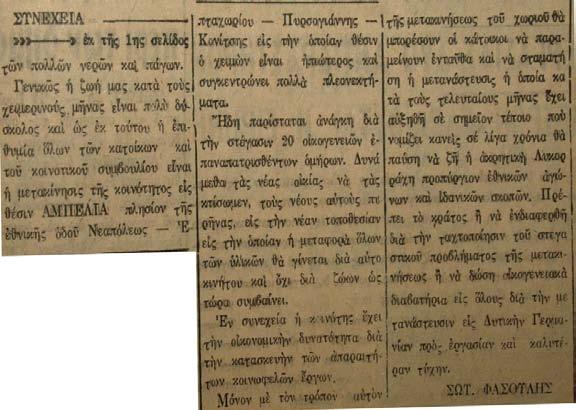 ΣΥΝΕΧΕΙΑ
ἐκ τῆς 1ης σελίδος
τῶν πολλῶν νερῶν καὶ πάγων.
Γενικῶς ἡ ζωή μας κατὰ τοὺς
χειμερινοὺς μῆνας εἶναι πολὺ δύ-
σκολος καὶ ὡς ἐκ τούτου ἡ ἐπι-
θυμία ὅλων τῶν κατοίκων καὶ
τοῦ κοινοτικοῦ συμβουλίου εἶναι
ἡ μετακίνησις τῆς κοινότητος εἰς
θέσιν ΑΜΠΕΛΙΑ πλησίον τῆς
ἐθνικῆς ὁδοῦ Νεαπόλεως — Ἑ
πταχωρίου — Πυρσογιάννης —
Κονίτσης εἰς τὴν ὁποίαν θέσιν
ὁ χειμὼν εἶναι ἠπιώτερος καὶ
συγκεντρώνει πολλὰ πλεονεκτή-
ματα.
Ἤδη παρίσταται ἀνάγκη διὰ
τὴν στέγασιν 20 οἰκογενειῶν ἐ-
παναπατρισθέντων ὁμήρων. Δυνά
μεθα τὰς νέας οἰκίας νὰ τὰς
κτίσωμεν, τοὺς νέους αὐτοὺς πυ
ρῆνας, εἰς τὴν νέαν τοποθεσίαν
εἰς τὴν ὁποίαν ἡ μεταφορὰ ὅλων
τῶν ὑλικῶν θὰ γίνεται διὰ αὐτο
κινήτου καὶ ὄχι διὰ ζώων ὡς
τώρα συμβαίνει.
Ἐν συνεχεία ἡ κοινότης ἔχει
τὴν οἰκονομικὴν δυνατότητα διὰ
τὴν κατασκευὴν τῶν ἀπαραιτή-
των κοινωφελῶν ἔργων.
Μόνον μὲ τὸν τρόπον αὐτὸν
τῆς μετακινήσεως τοῦ χωριοῦ θὰ
μπορέσουν οἱ κάτοικοι νὰ παρα-
μείνουν ἐνταῦθα καὶ νὰ σταματή
ση ἡ μετανάστευσις ἡ ὁποία κα
τὰ τοὺς τελευταίους μῆνας ἔχει
αὐξηθῆ σὲ σημεῖον τέτοιο ποὺ
νομίζει κανεὶς σὲ λίγα χρόνια θὰ
παύση νὰ ζῆ ἡ ἀκριτικὴ Λυκορ
ράχη προπύργιον ἐθνικῶν ἀγώ-
νων καὶ ἰδανικῶν σκοπῶν. Πρέ-
πει τὸ κράτος ἢ νὰ ἐνδιαφερθῆ
διὰ τὴν ταχτοποίησιν τοῦ στεγα
στικοῦ προβλήματος τῆς μετακι-
νήσεως ἢ νὰ δώση οἰκογενειακὰ
διαβατήρια εἰς ὅλους διὰ τὴν με
τανάστευσιν εἰς Δυτικὴν Γερμα-
νίαν πρὸς ἐργασίαν καὶ καλυτέ-
ραν τύχην.
ΣΩΤ. ΦΑΣΟΥΛΗΣ